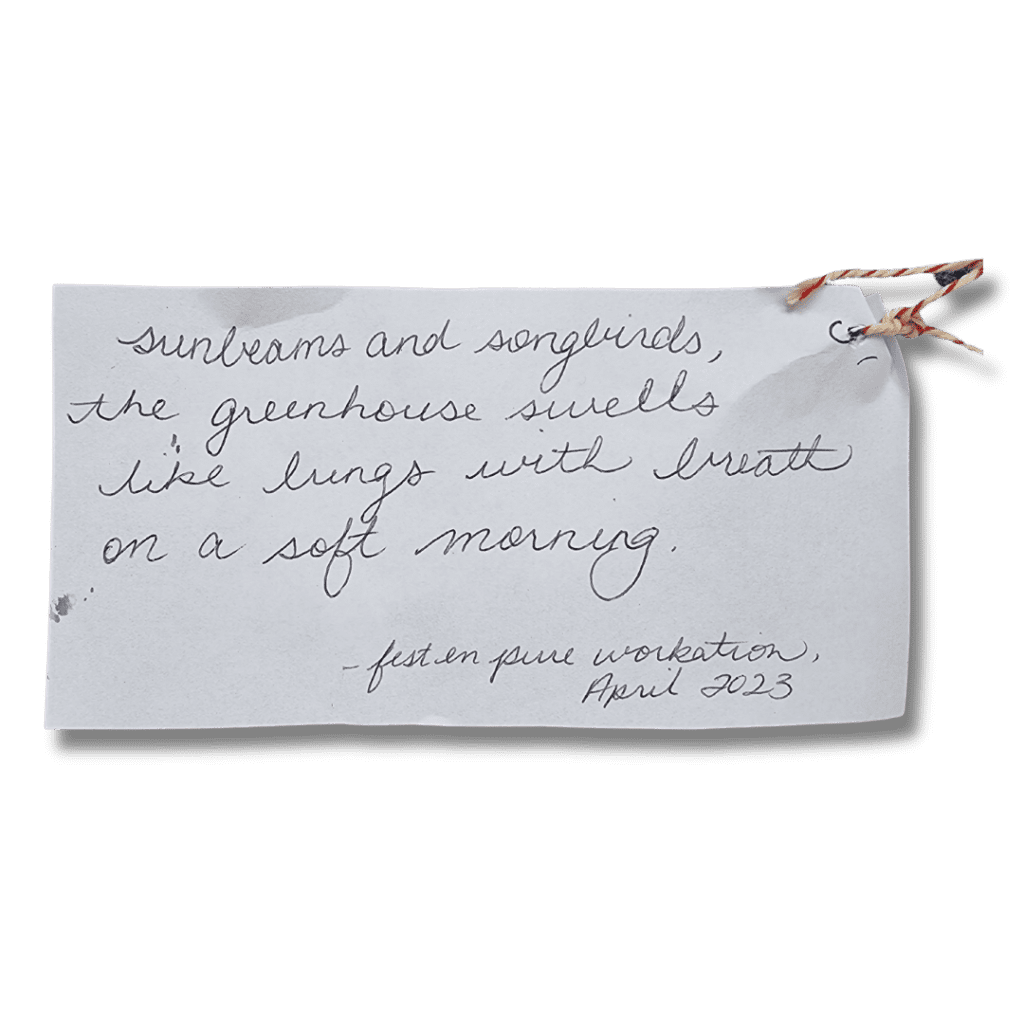 sunbeams and songbirds,
the greenhouse swells
like lungs with breath
on a soft morning.
- festen pure workation,
April 2023